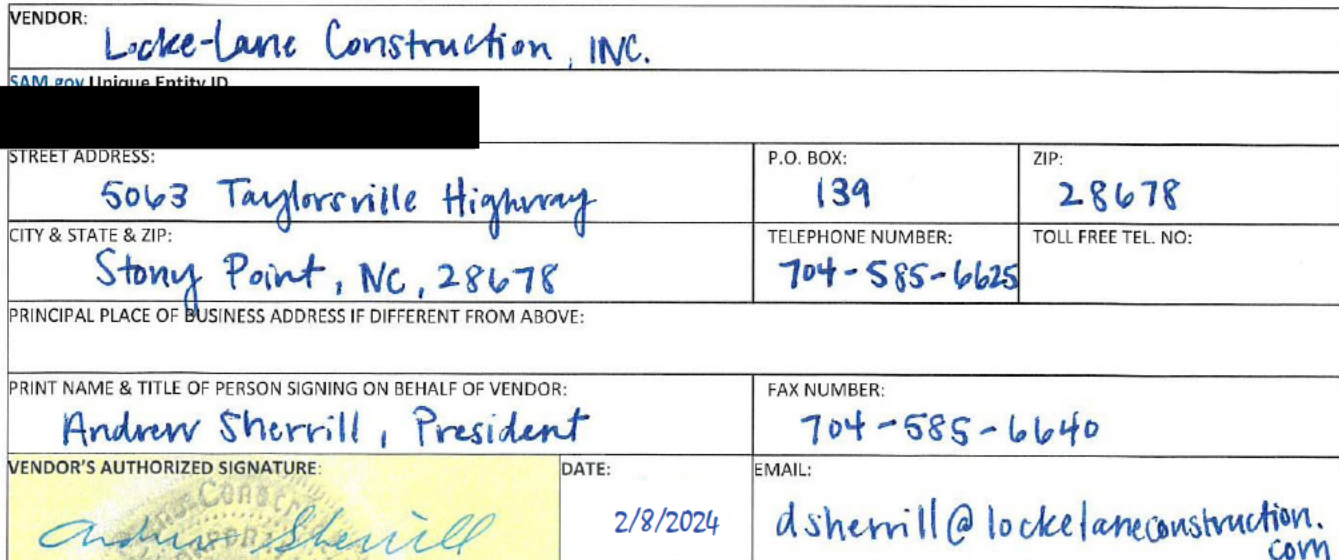 VENDOR:
Locke-Lane Construction, INC.
SAM.gov Unique Entity ID
STREET ADDRESS:
5063 Taylorsville Highway
P.O. BOX:
139
ZIP:
28678
CITY & STATE & ZIP:
Stony Point, NC, 28678
TELEPHONE NUMBER:
704-585-6625
TOLL FREE TEL. NO:
PRINCIPAL PLACE OF BUSINESS ADDRESS IF DIFFERENT FROM ABOVE:
PRINT NAME & TITLE OF PERSON SIGNING ON BEHALF OF VENDOR:
Andrew Sherrill, President
FAX NUMBER:
704-585-6640
VENDOR'S AUTHORIZED SIGNATURE:
Andrew Sherrill
DATE:
2/8/2024
EMAIL:
dsherrill@lockelaneconstruction.
com